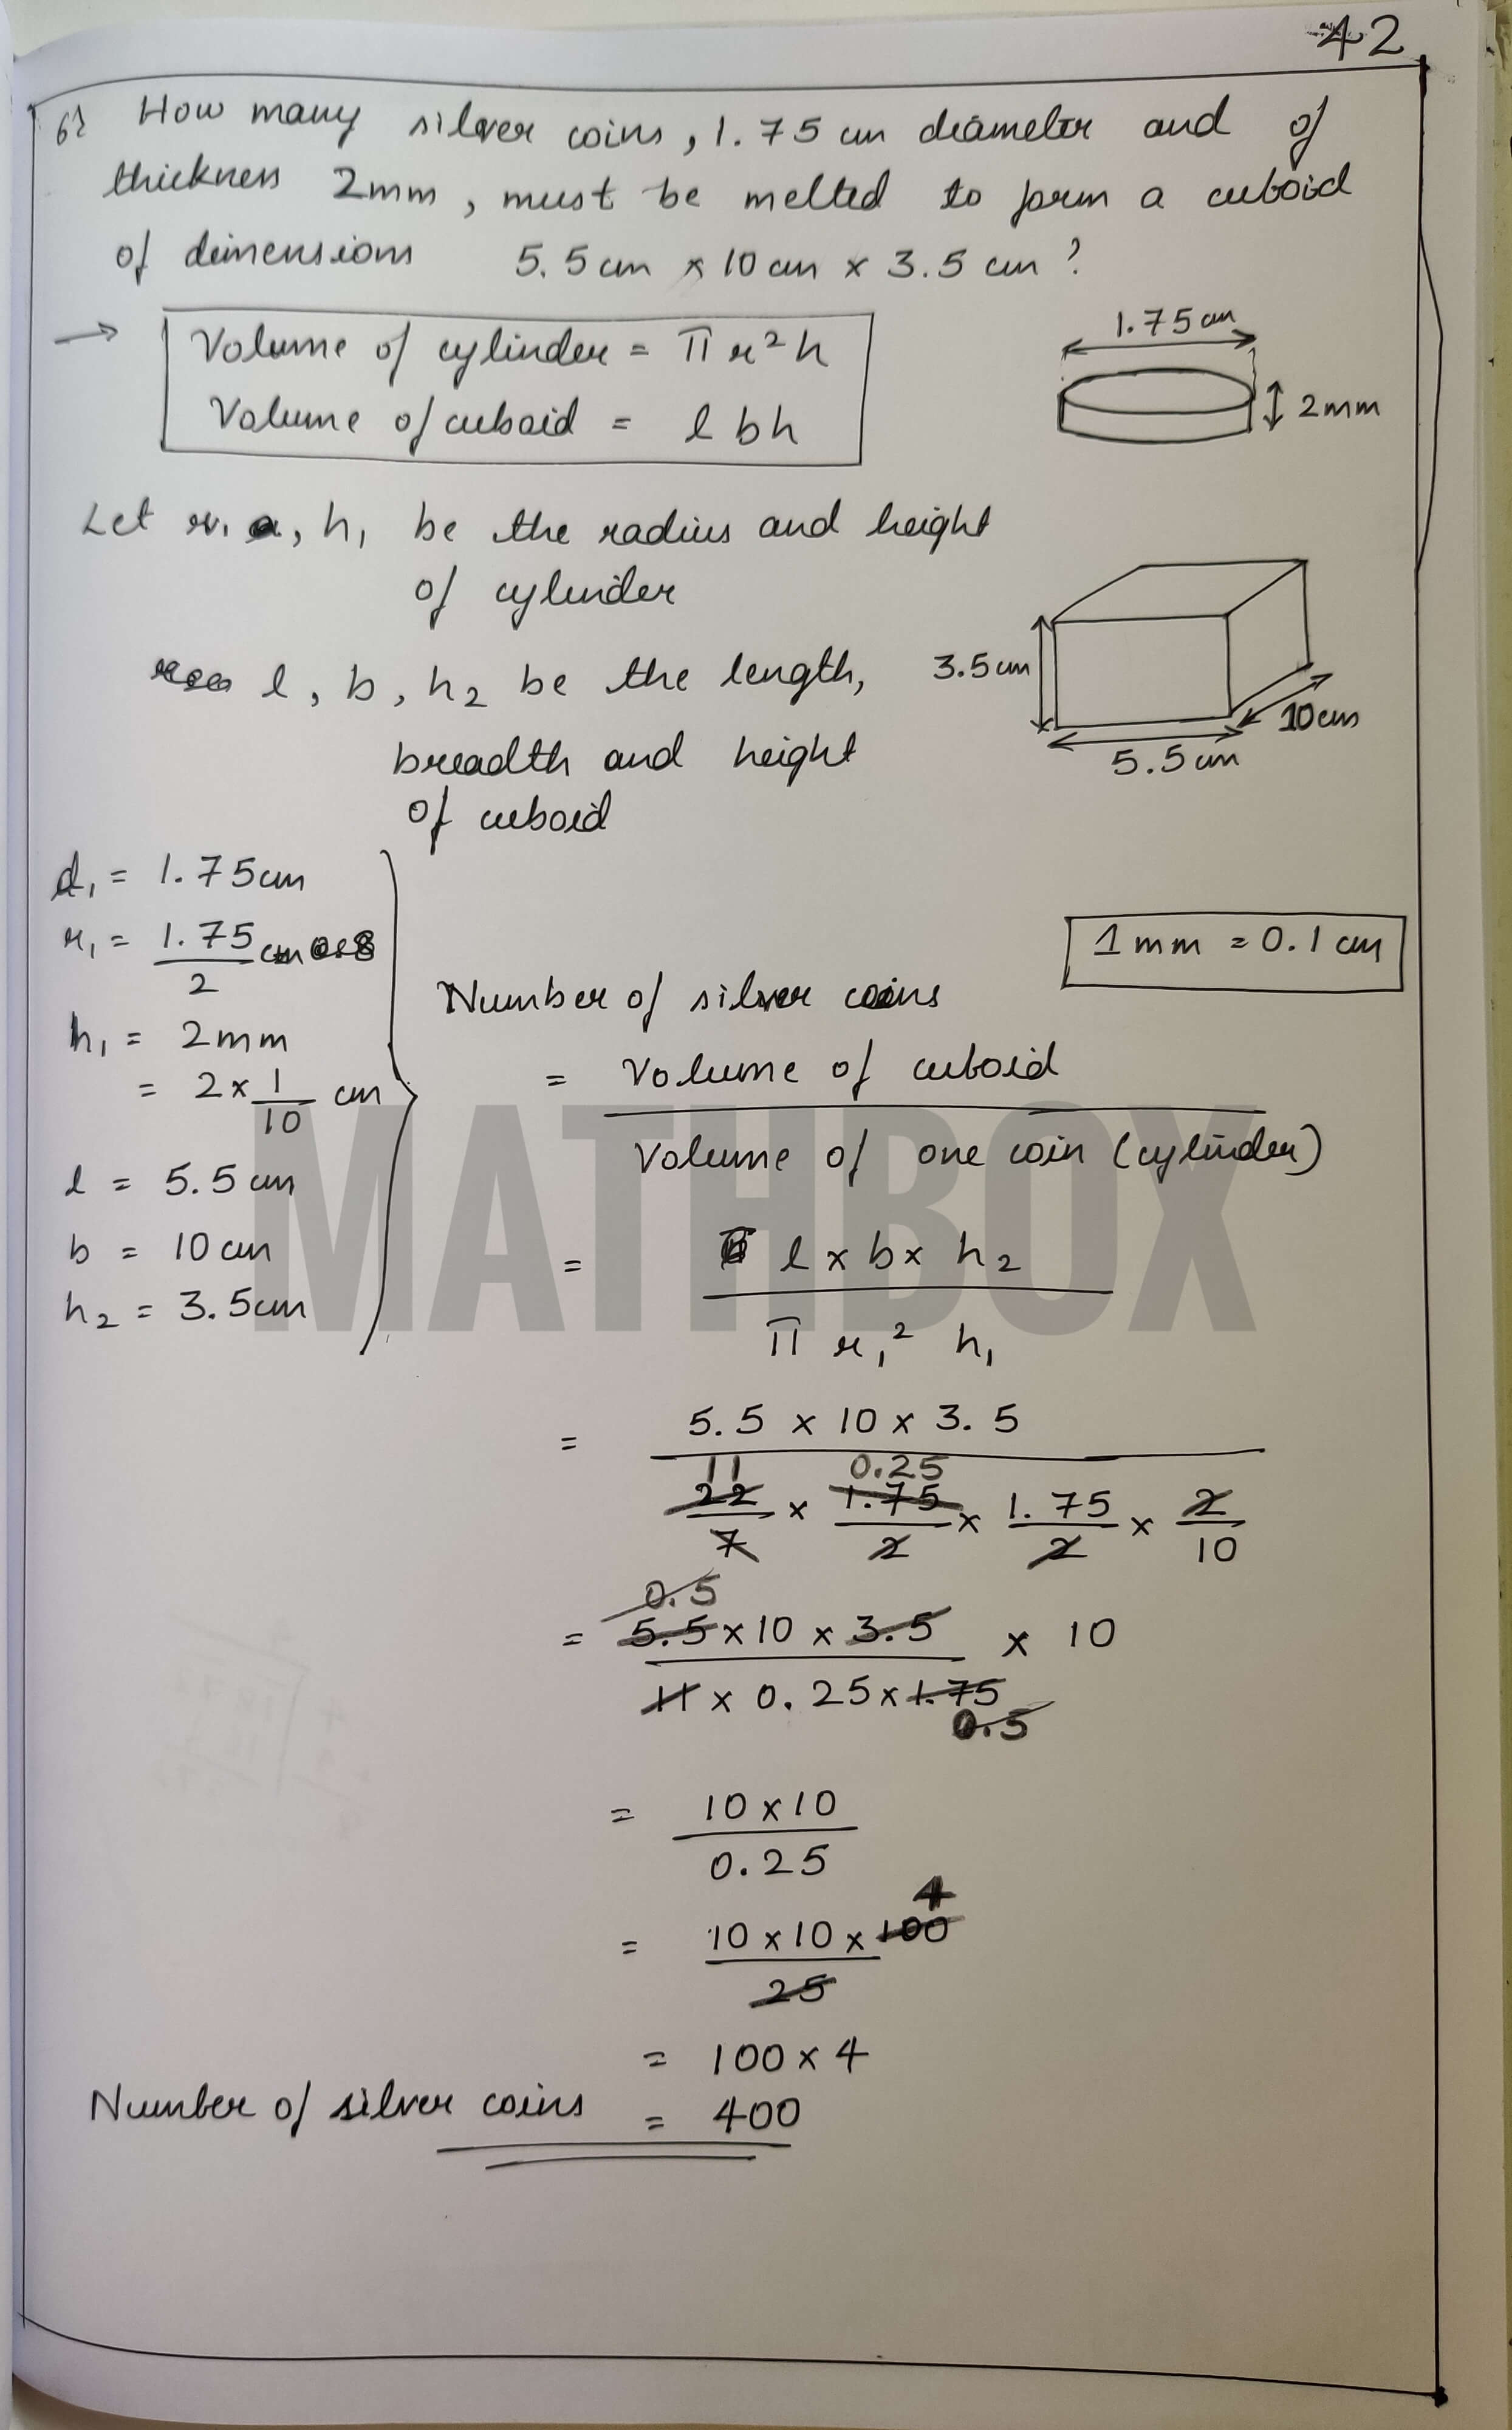 42
6) How many silver coins, 1.75 cm diameter and of
thickness 2mm, must be melted to form a cuboid
of dimensions 5.5cm × 10 cm × 3.5 cm ?
→ Volume of cylinder = π r² h
Volume of cuboid = l b h
1.75 cm
2mm
Let r₁, h₁ be the radius and height
of cylinder
l, b, h₂ be the length,
breadth and height
of cuboid
3.5 cm
10 cm
5.5 cm
d₁ = 1.75 cm
r₁ = 1.75/2 cm
h₁ = 2mm
= 2 × 1/10 cm
l = 5.5 cm
b = 10 cm
h₂ = 3.5 cm
1 mm = 0.1 cm
Number of silver coins
= Volume of cuboid
Volume of one coin (cylinder)
MATHBOX
= l × b × h₂
π r₁² h₁
= 5.5 × 10 × 3.5
11 0.25
22/7 × 1.75/2 × 1.75/2 × 2/10
0.5
= 5.5 × 10 × 3.5 × 10
11 × 0.25 × 1.75
0.5
= 10 × 10
0.25
4
= 10 × 10 × 100
25
= 100 × 4
Number of silver coins = 400